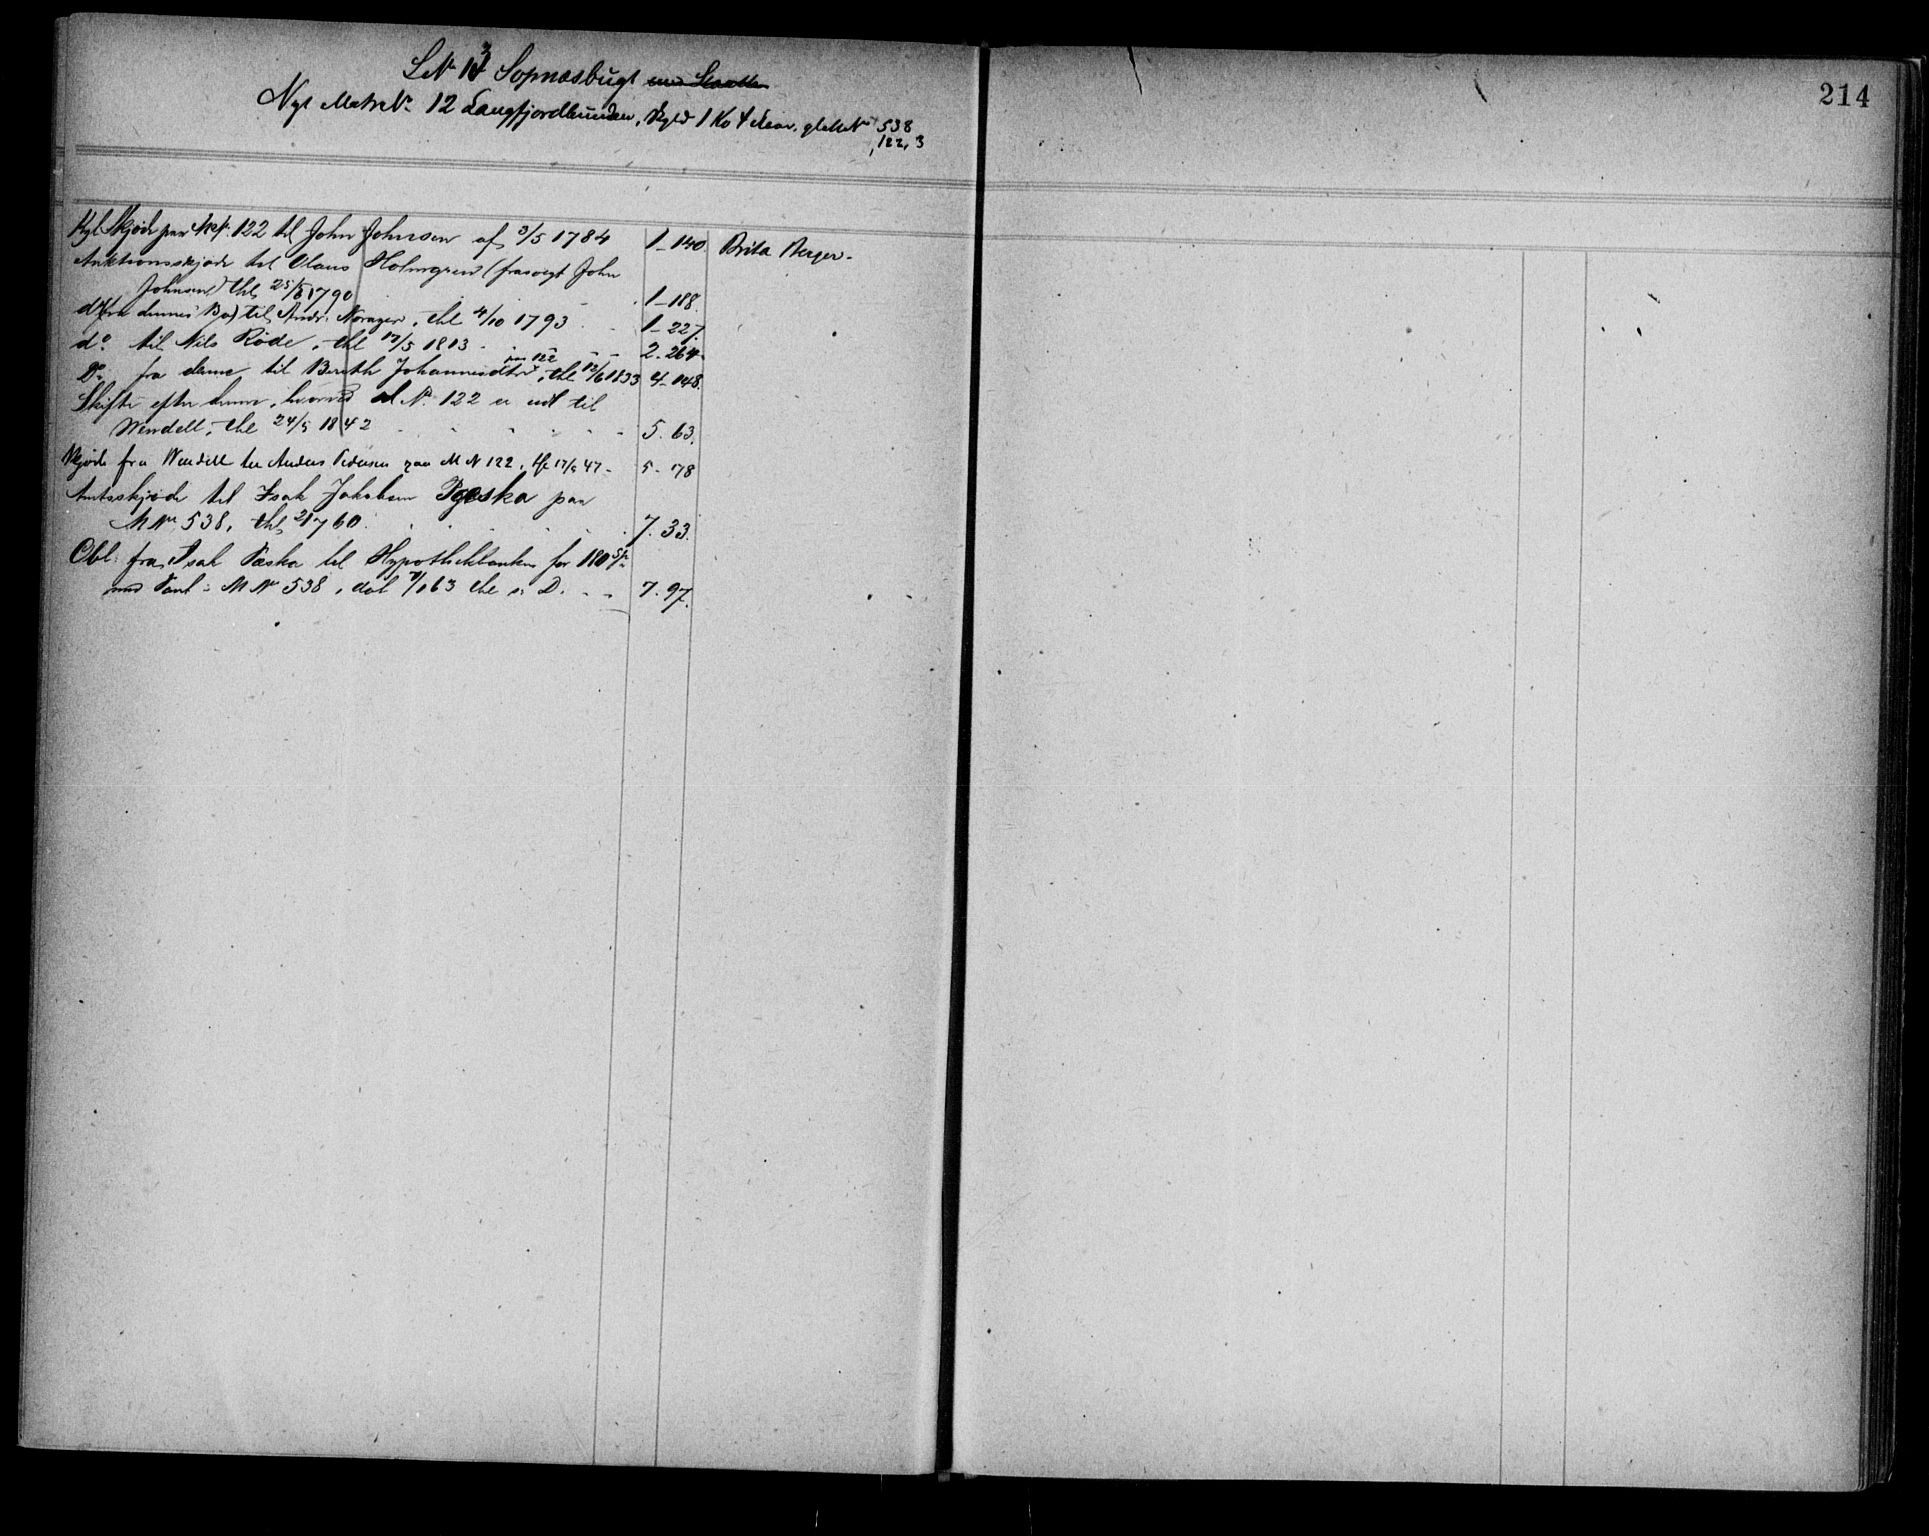 214
LNr 13 Sopnæsbugt
Nyt MatrNr 12 Langfjordbunden, Skyld 1 Ko 4 , gl MNr 538
122, 3
Kgl Skjøde paa MN. 122 til John Johnsen af 3/5 1784 1-140. Brita Berger.
Auktionsskjøde til Claus Holmgren (frasolgt John
Johnsen) thl 25/5 1790 1-188.
do (fra dennes Bo) til Andr. Norager, thl 4/10 1793 1-227.
do til Nils Røde, thl 13/5 1813 2-264.
Do fra denne til Bereth Johannesdtr paa 122, thl 12/6 1833 4-148.
Skifte efter denne, hvorved MN. 122 er udl til
Wendell, thl 24/5 1842 5.63.
Skjøde fra Wendell til Anders Pedersen paa M N 122, thl 17/5 47 5-78
Amtsskjøde til Isak Jakobsen Pæska paa
MNr 538, thl 2/7 60. 7.33.
Obl. fra Isak Pæska til Hypothekbanken for 180 Sp
med Pant i M Nr 538, dat 63 thl s. D. 7.97.